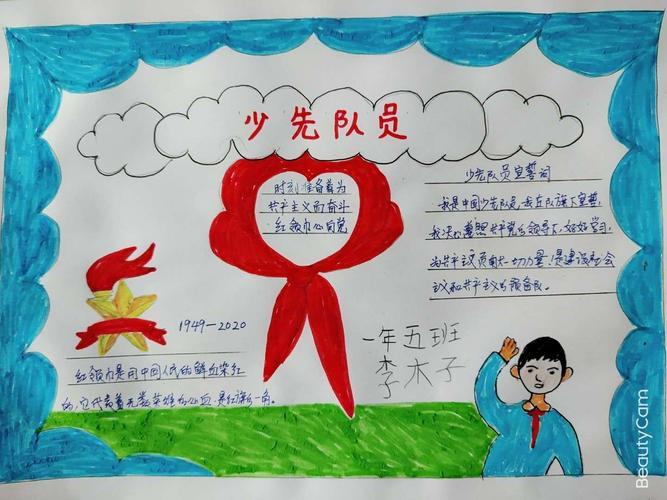 少先队员
时刻准备着为
共产主义而奋斗
红领巾心向党
少先队员宣誓词
我是中国少先队员,我在队旗下宣誓,
我决心遵照共产党的领导下,好好学习,
为共产主义贡献一切力量!是建设社会
主义和共产主义的预备队。
1949—2020
红领巾是用中国人民的鲜血染红
的,它代表着无数英雄的心血,是红旗的一角。
一年五班
李木子
BeautyCam